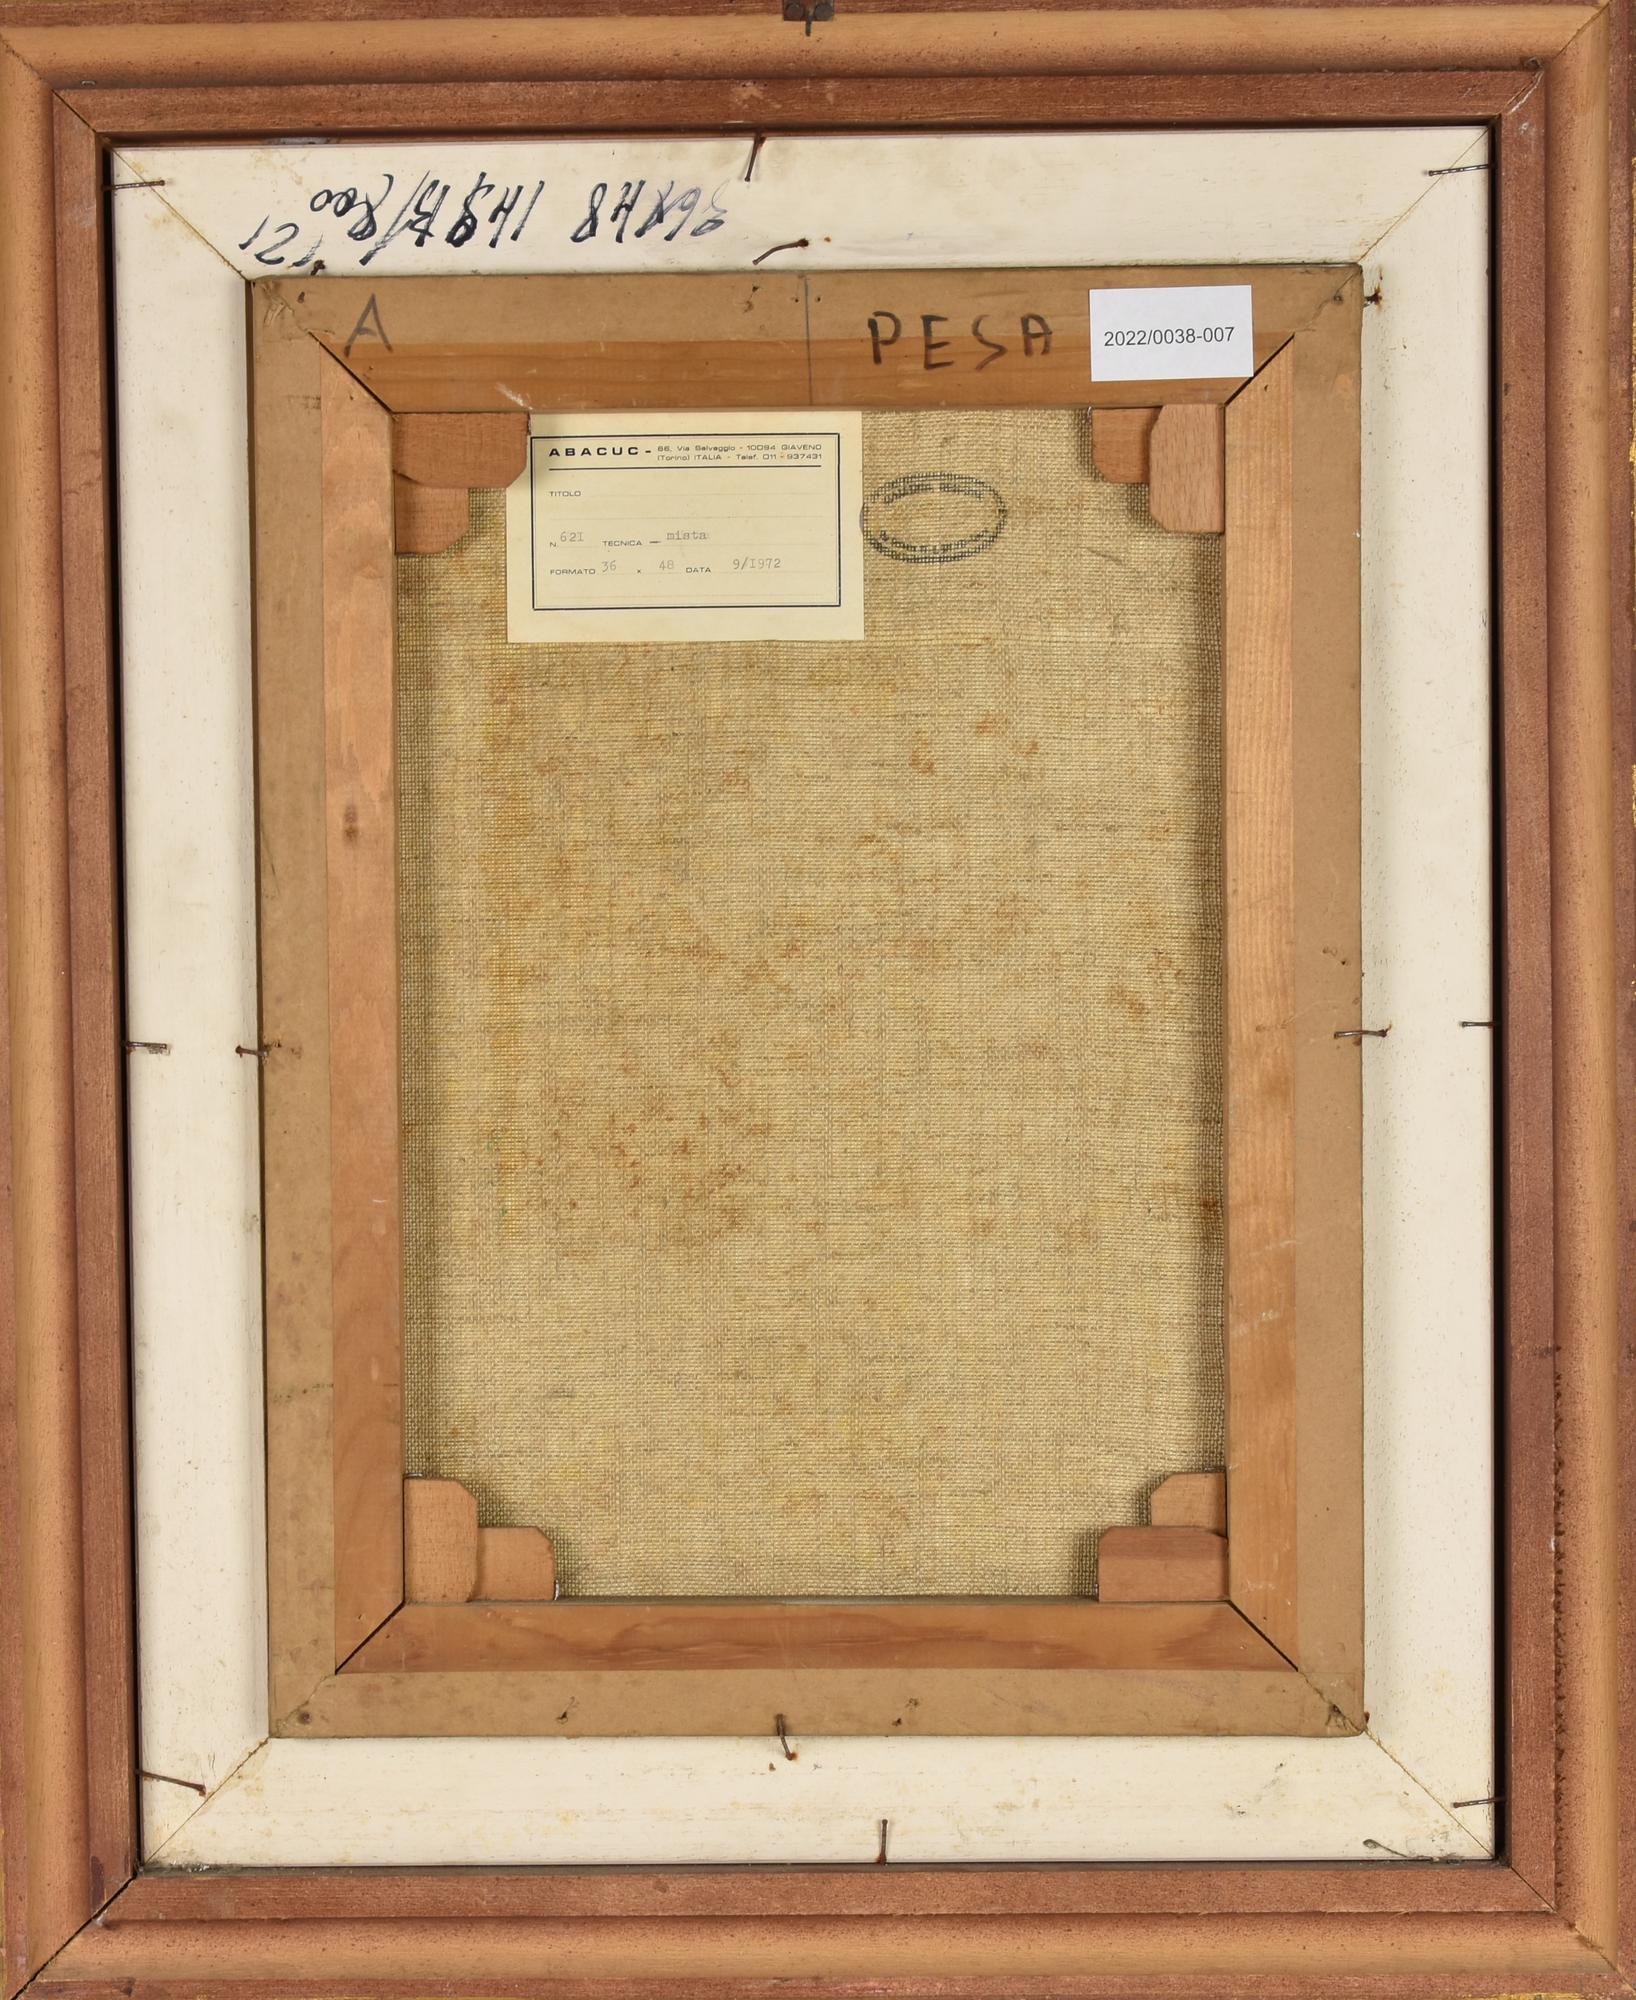 36x48 148
A
PESA
2022/0038-007
ABACUC - 66, Via Selvaggio - 10094 GIAVENO
(Torino) ITALIA - Telef. 011 - 937431
TITOLO
N. 62I TECNICA — mista
FORMATO 36 x 48 DATA 9/I972